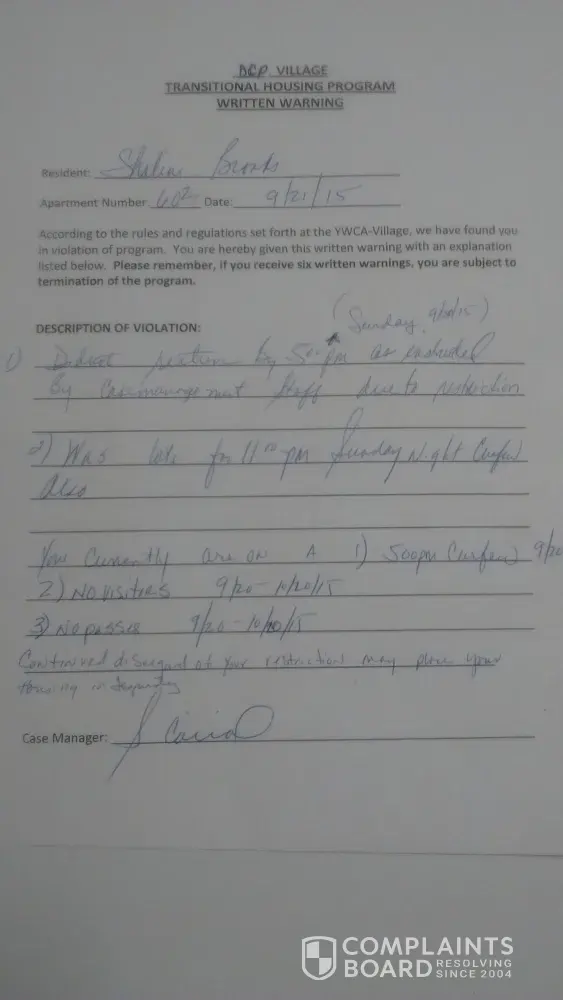 DCP VILLAGE
TRANSITIONAL HOUSING PROGRAM
WRITTEN WARNING
Resident: Brooks
Apartment Number: 602 Date: 9/21/15
According to the rules and regulations set forth at the YWCA-Village, we have found you
in violation of program. You are hereby given this written warning with an explanation
listed below. Please remember, if you receive six written warnings, you are subject to
termination of the program.
(Sunday, 9/20/15)
DESCRIPTION OF VIOLATION:
1) Did not return by 5:00 pm as instructed
By Casemanagement Staff due to restriction
2) Was late for 11:00 pm Sunday Night Curfew
also
You Currently are on A 1) 500pm Curfew 9/20
2) NO VISITORS 9/20 - 10/20/15
3) No passes 9/20 - 10/20/15
Continued disregard of your restriction may place your
housing in jeopardy
Case Manager: S
COMPLAINTS
BOARD RESOLVING
SINCE 2004